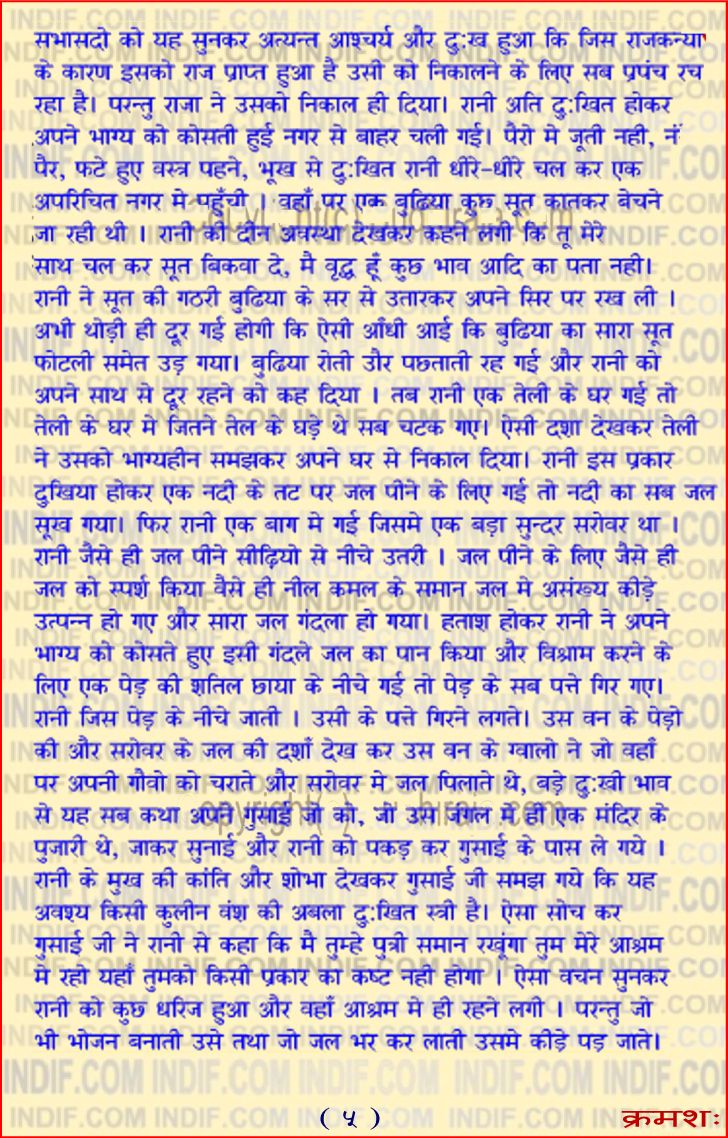 सभासदो को यह सुनकर अत्यन्त आश्चर्य और दु:ख हुआ कि जिस राजकन्या
के कारण इसको राज प्राप्त हुआ है उसी को निकालने के लिए सब प्रपंच रच
रहा है। परन्तु राजा ने उसको निकाल ही दिया। रानी अति दु:खित होकर
अपने भाग्य को कोसती हुई नगर से बाहर चली गई। पैरो मे जूती नही, नं
पैर, फटे हुए वस्त्र पहने, भूख से दु:खित रानी धीरे-धीरे चल कर एक
अपरिचित नगर मे पहुँची । वहाँ पर एक बुढिया कुछ सूत कातकर बेचने
जा रही थी । रानी की दीन अवस्था देखकर कहने लगी कि तू मेरे
साथ चल कर सूत बिकवा दे, मै वृद्ध हूं कुछ भाव आदि का पता नही।
रानी ने सूत की गठरी बुढिया के सर से उतारकर अपने सिर पर रख ली ।
अभी थोड़ी ही दूर गई होगी कि ऐसी आँधी आई कि बुढिया का सारा सूत
फोटली समेत उड़ गया। बुढिया रोती उौर पछताती रह गई और रानी को
अपने साथ से दूर रहने को कह दिया । तब रानी एक तेली के घर गई तो
तेली के घर मे जितने तेल के घड़े थे सब चटक गए। ऐसी दशा देखकर तेली
ने उसको भाग्यहीन समझकर अपने घर से निकाल दिया। रानी इस प्रकार
दुखिया होकर एक नदी के तट पर जल पीने के लिए गई तो नदी का सब जल
सूख गया। फिर रानी एक बाग मे गई जिसमे एक बड़ा सुन्दर सरोवर था ।
रानी जैसे ही जल पीने सीढ़ियो से नीचे उतरी । जल पीने के लिए जैसे ही
जल को स्पर्श किया वैसे ही नील कमल के समान जल मे असंख्य कीड़े
उत्पन्न हो गए और सारा जल गंदला हो गया। हताश होकर रानी ने अपने
भाग्य को कोसते हुए इसी गंदले जल का पान किया और विश्राम करने के
लिए एक पेड़ की श्तिल छाया के नीचे गई तो पेड़ के सब पत्ते गिर गए।
रानी जिस पेड़ के नीचे जाती । उसी के पत्ते गिरने लगते। उस वन के पेड़ो
की और सरोवर के जल की दशाँ देख कर उस वन के ग्वालो ने जो वहाँ
पर अपनी गौवो को चराते और सरोवर मे जल पिलाते थे, बड़े दु:खी भाव
से यह सब कथा अपने गुसाई जी को, जो उस जंगल मे ही एक मंदिर के
पुजारी थे, जाकर सुनाई और रानी को पकड़ कर गुसाई के पास ले गये ।
रानी के मुख की कांति और शोभा देखकर गुसाई जी समझ गये कि यह
अवश्य किसी कुलीन वंश की अबला दु:खित स्त्री है। ऐसा सोच कर
गुसाई जी ने रानी से कहा कि मै तुम्हे पुत्री समान रखूंगा तुम मेरे आश्रम
मे रहो यहाँ तुमको किसी प्रकार का कष्ट नही होगा । ऐसा वचन सुनकर
रानी को कुछ धरिज हुआ और वहाँ आश्रम मे ही रहने लगी । परन्तु जो
भी भोजन बनाती उसे तथा जो जल भर कर लाती उसमे कीड़े पड़ जाते।
( ५ ) क्रमशः